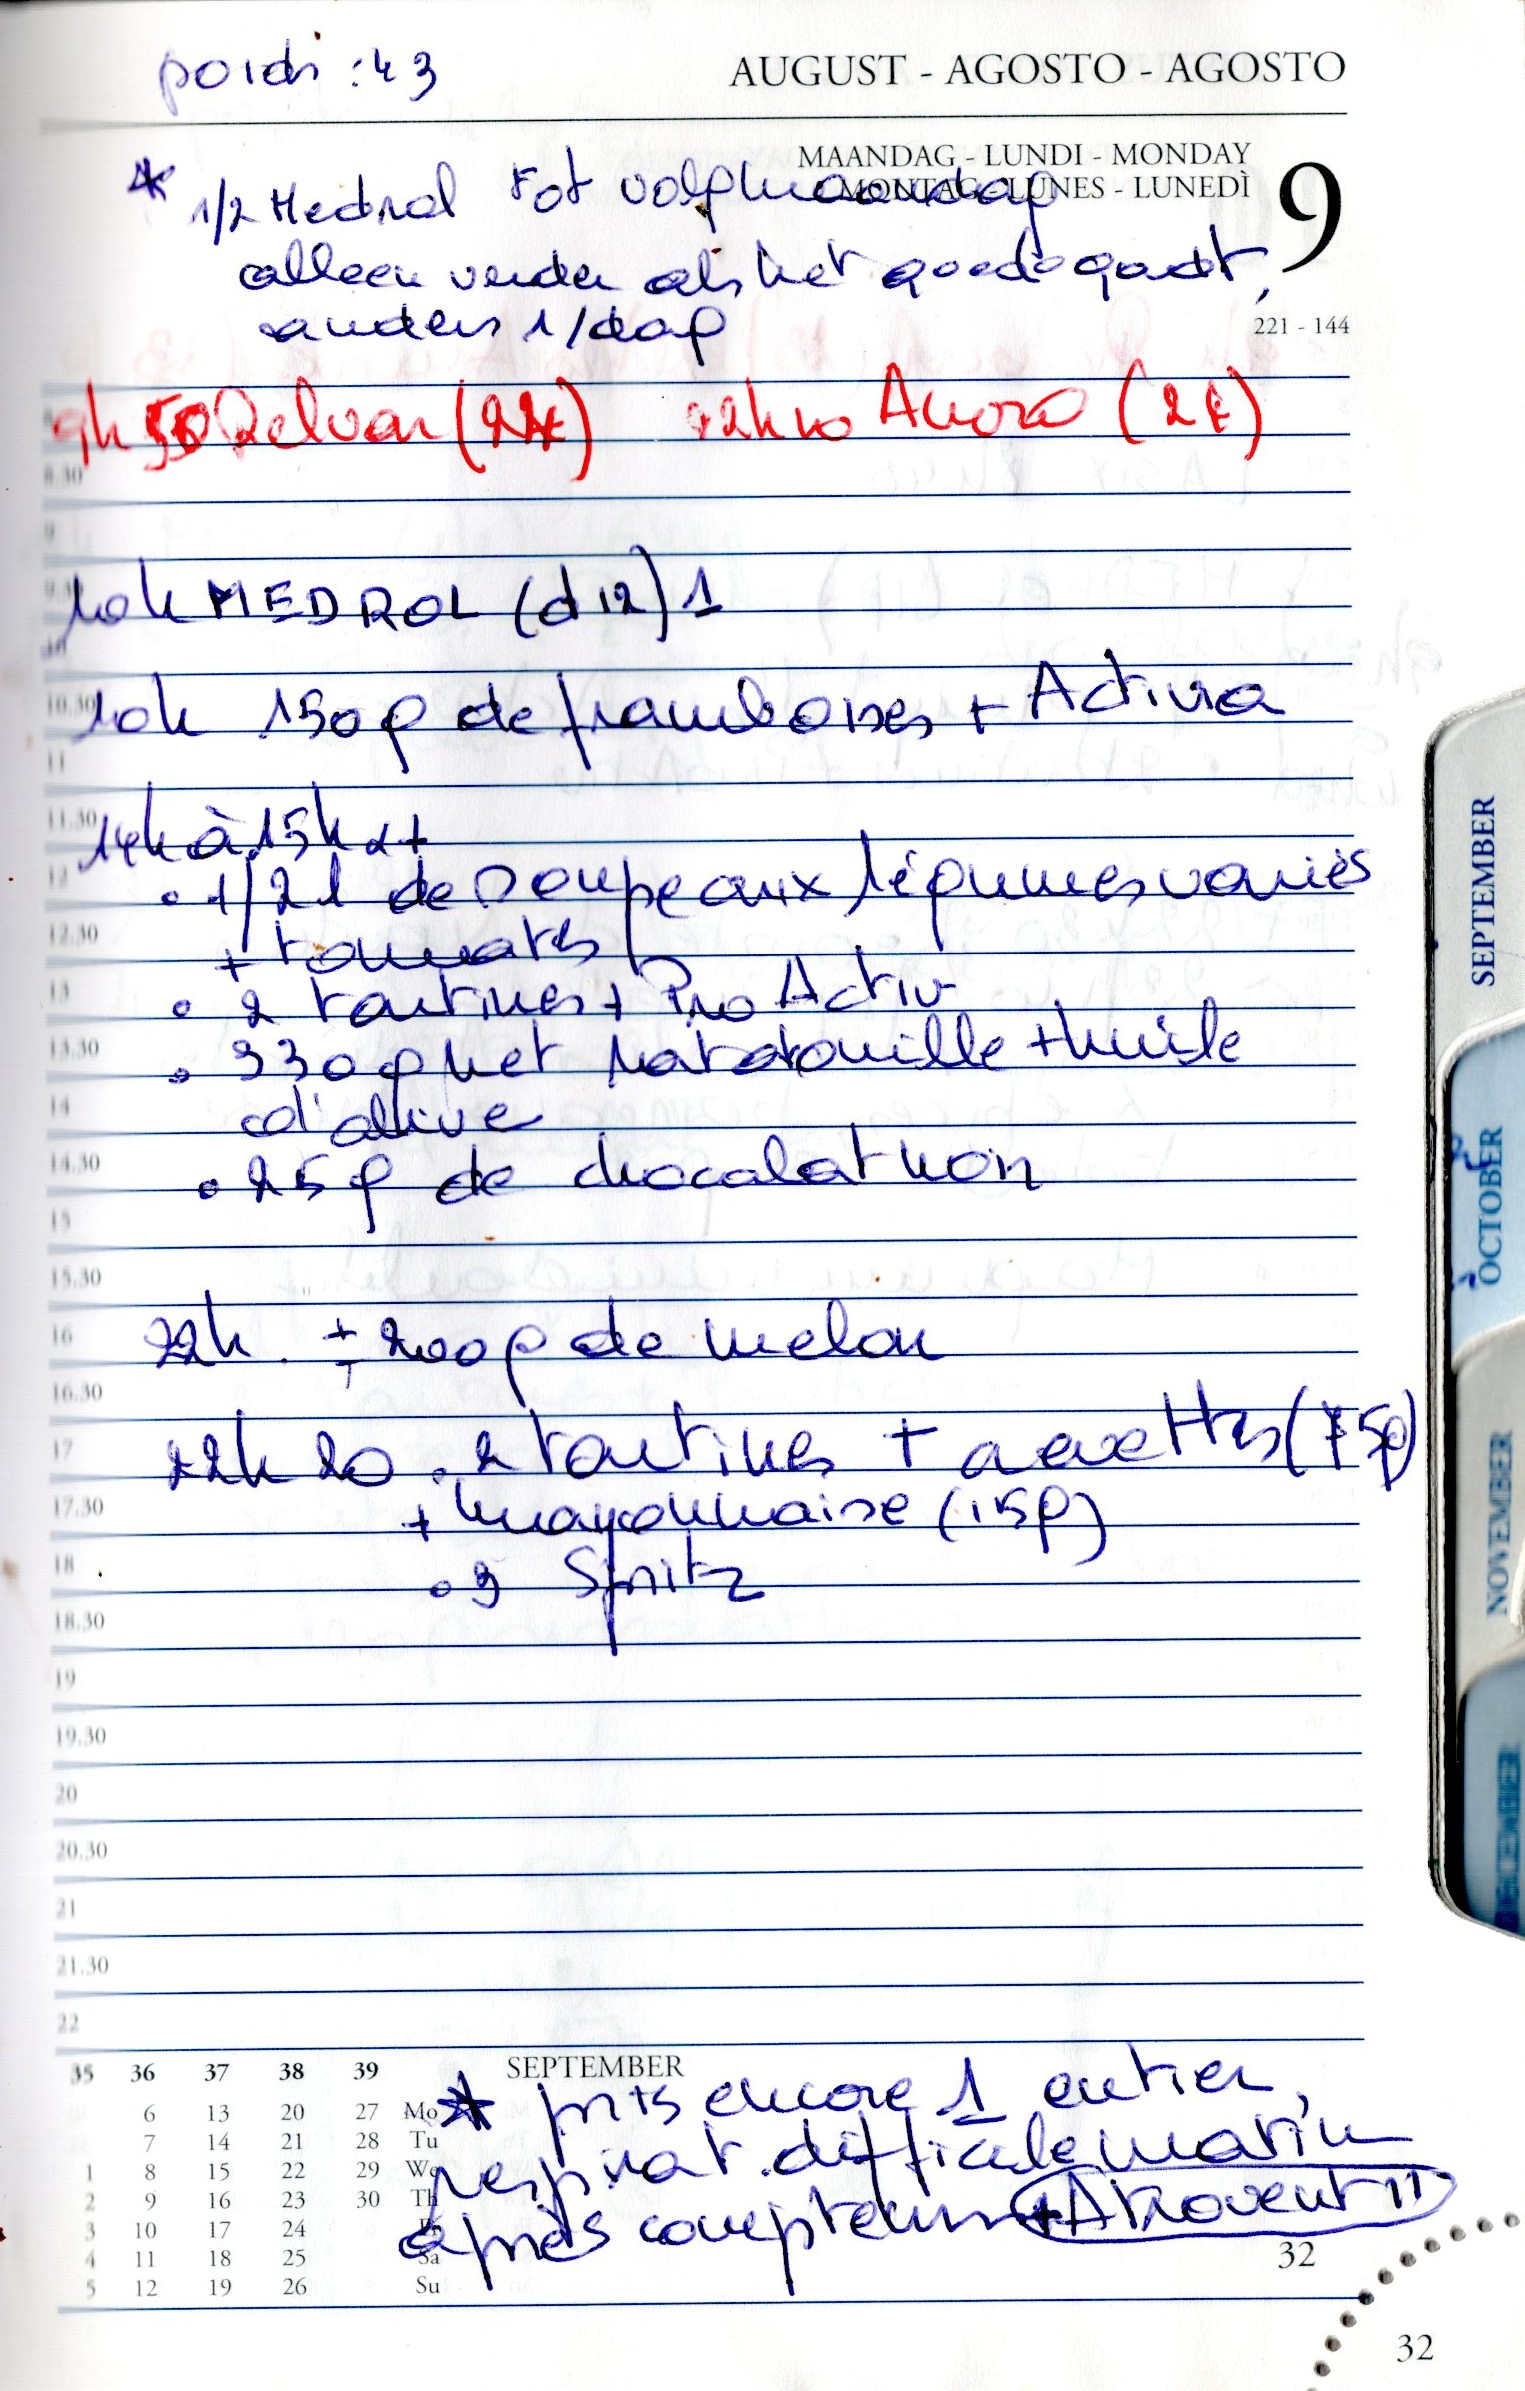 poids : 43
AUGUST - AGOSTO - AGOSTO
MAANDAG - LUNDI - MONDAY
MONTAG - LUNES - LUNEDÌ
9
* 1/2 Medrol tot volg maandag
alleen verder als het goed gaat,
anders 1/dag
221 - 144
9h50 Relvar (24) 22h10 Anoro (2t)
8.30
9
9.30
10h MEDROL (d12) 1
10
10.30
10h 150g de framboises + Activia
11
11.30
14h à 15h
12
• 1/2 l de soupe aux légumes variés
12.30
+ tomates
13
• 2 tartines + Pro Activ
13.30
• 330g net ratatouille + huile
14
d'olive
14.30
• 25g de chocolat noir
15
15.30
16
22h ± 200g de melon
16.30
17
22h20 • 2 tartines + crevettes (75g)
17.30
+ mayonnaise (15g)
18
• 3 Spritz
18.30
19
19.30
20
20.30
21
21.30
22
35 36 37 38 39 SEPTEMBER
6 13 20 27 Mo
7 14 21 28 Tu
1 8 15 22 29 We
2 9 16 23 30 Th
3 10 17 24
4 11 18 25 Sa
5 12 19 26 Su
* pris encore 1 entier,
respirat. difficile matin
après compteurs + Atrovent !!
32
32
SEPTEMBER
OCTOBER
NOVEMBER
DECEMBER